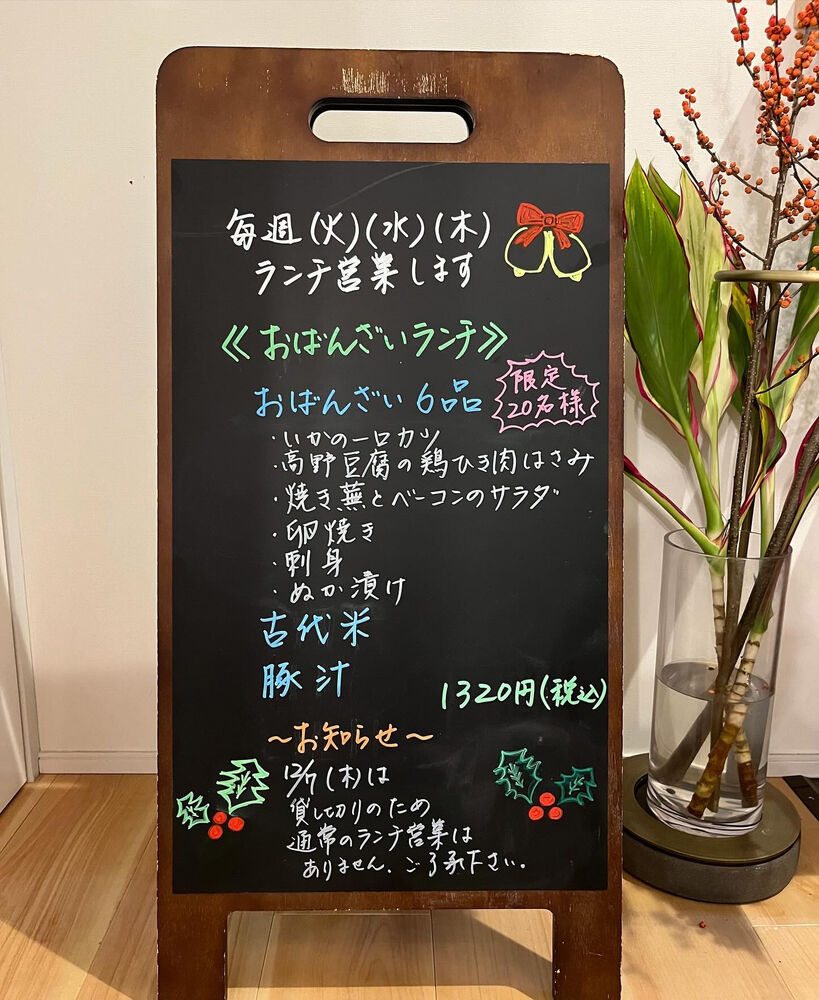 毎週(火)(水)(木)
ランチ営業します
≪おばんざいランチ≫
おばんざい6品
限定
20名様
・いかの一口カツ
・高野豆腐の鶏ひき肉はさみ
・焼き蕪とベーコンのサラダ
・卵焼き
・刺身
・ぬか漬け
古代米
豚汁
1320円(税込)
〜お知らせ〜
12/7(木)は
貸し切りのため
通常のランチ営業は
ありません。ご了承下さい。